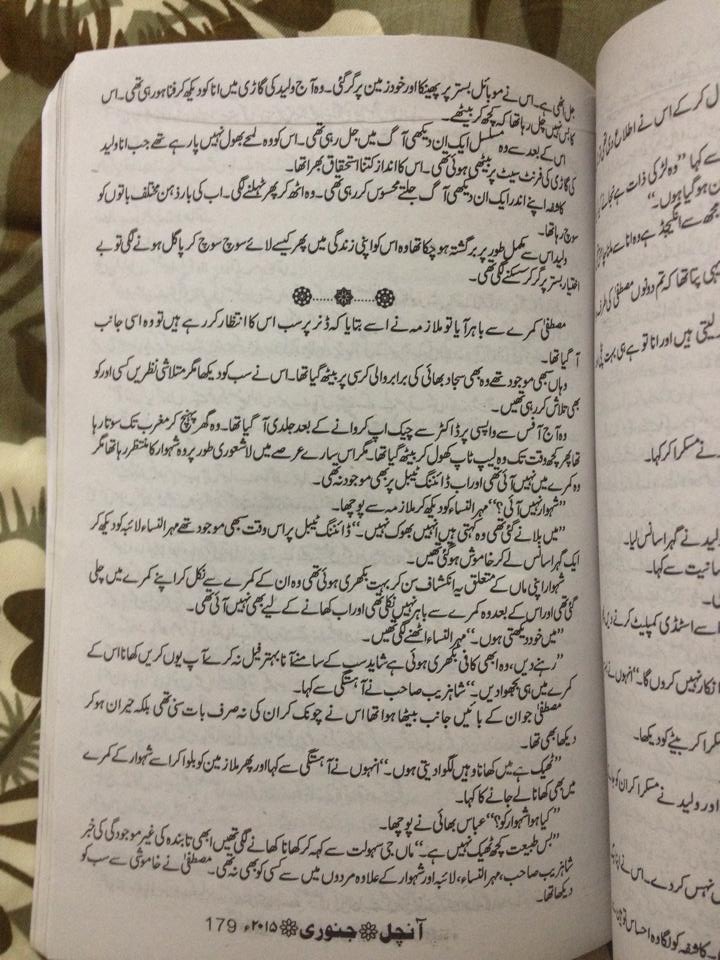 جل اٹھی ہے۔ اس نے موبائل بستر پر پھینکا اور خود زمین پر گر گئی۔ وہ آج ولید کی گاڑی میں انا کو دیکھ کر فنا ہو رہی تھی۔ اس
کا بس نہیں چل رہا تھا کہ کچھ کر بیٹھے۔
اس کے بعد سے وہ مسلسل ایک ان دیکھی آگ میں جل رہی تھی۔ اس کو وہ لمحے بھول نہیں پا رہے تھے جب انا ولید
کی گاڑی کی فرنٹ سیٹ پر بیٹھی ہوئی تھی۔ اس کا انداز کتنا استحقاق بھرا تھا۔
کاشفہ اپنے اندر ایک ان دیکھی آگ جلتے محسوس کر رہی تھی۔ وہ اٹھ کر پھر ٹہلنے لگی۔ اب کی بار ذہن مختلف باتوں کو
سوچ رہا تھا۔
ولید اس سے مکمل طور پر برگشتہ ہو چکا تھا وہ اس کو اپنی زندگی میں پھر کیسے لائے سوچ سوچ کر پاگل ہونے لگی تو بے
اختیار بستر پر گر کر سسکنے لگی تھی۔
مصطفیٰ کمرے سے باہر آیا تو ملازمہ نے اسے بتایا کہ ڈنر پر سب اس کا انتظار کر رہے ہیں تو وہ اسی جانب
آ گیا تھا۔
وہاں سبھی موجود تھے وہ بھی سجاد بھائی کی برابر والی کرسی پر بیٹھ گیا تھا۔ اس نے سب کو دیکھا مگر متلاشی نظریں کسی اور کو
بھی تلاش کر رہی تھیں۔
وہ آج آفس سے واپسی پر ڈاکٹر سے چیک اپ کروانے کے بعد جلدی آ گیا تھا۔ وہ گھر پہنچ کر مغرب تک سوتا رہا
تھا پھر کچھ وقت تک وہ لیپ ٹاپ کھول کر بیٹھ گیا تھا۔ مگر اس سارے عرصے میں لاشعوری طور پر وہ شہوار کا منتظر رہا تھا مگر
وہ کمرے میں نہیں آئی تھی اور اب ڈائننگ ٹیبل پر بھی موجود نہ تھی۔
”شہوار نہیں آئی؟“ مہر النساء کو دیکھ کر ملازمہ سے پوچھا۔
”میں بلانے گئی تھی وہ کہتی ہیں انہیں بھوک نہیں۔“ ڈائننگ ٹیبل پر اس وقت سبھی موجود تھے مہر النساء لائبہ کو دیکھ کر
ایک گہرا سانس لے کر خاموش ہو گئی تھیں۔
شہوار اپنی ماں کے متعلق یہ انکشاف سن کر بہت بکھری ہوئی تھی وہ ان کے کمرے سے نکل کر اپنے کمرے میں چلی
گئی تھی اور اس کے بعد وہ کمرے سے باہر نہیں نکلی تھی اور اب کھانے کے لیے بھی نہیں آئی تھی۔
”میں خود دیکھتی ہوں۔“ مہر النساء اٹھنے لگی تھیں۔
”رہنے دیں، وہ ابھی کافی بکھری ہوئی ہے شاید سب کے سامنے آنا بہتر فیل نہ کرے آپ یوں کریں کھانا اس کے
کمرے میں ہی بھجوا دیں۔“ شاہزیب صاحب نے آہستگی سے کہا۔
مصطفیٰ جو ان کے بائیں جانب بیٹھا ہوا تھا اس نے چونک کر ان کی نہ صرف بات سنی تھی بلکہ حیران ہو کر
دیکھا بھی تھا۔
”ٹھیک ہے میں کھانا وہیں لگوا دیتی ہوں۔“ انہوں نے آہستگی سے کہا اور پھر ملازمین کو بلوا کر اسے شہوار کے کمرے
میں بھی کھانا لے جانے کا کہا۔
”کیا ہوا شہوار کو؟“ عباس بھائی نے پوچھا۔
”بس طبیعت کچھ ٹھیک نہیں ہے۔“ ماں جی سہولت سے کہہ کر کھانا کھانے لگی تھیں ابھی تابندہ کی غیر موجودگی کی خبر
شاہزیب صاحب، مہر النساء، لائبہ اور شہوار کے علاوہ مردوں میں سے کسی کو بھی نہ تھی۔ مصطفیٰ نے خاموشی سے سب کو
دیکھا تھا۔
آنچل جنوری ۲۰۱۵ء 179
نے مسکرا کر کہا۔
ولید نے گہرا سانس لیا۔
سانیت سے کہا۔
اسے اسٹڈی کمپلیٹ کرنے دیں
انکار نہیں کروں گا۔“ انہوں نے
مسکرا کر بیٹے کو دیکھا۔
اور ولید نے مسکرا کر ان کو